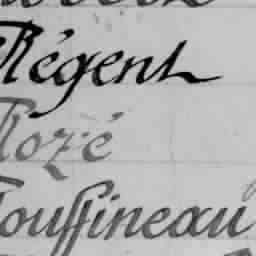 Régent
Rozé
Touffineau